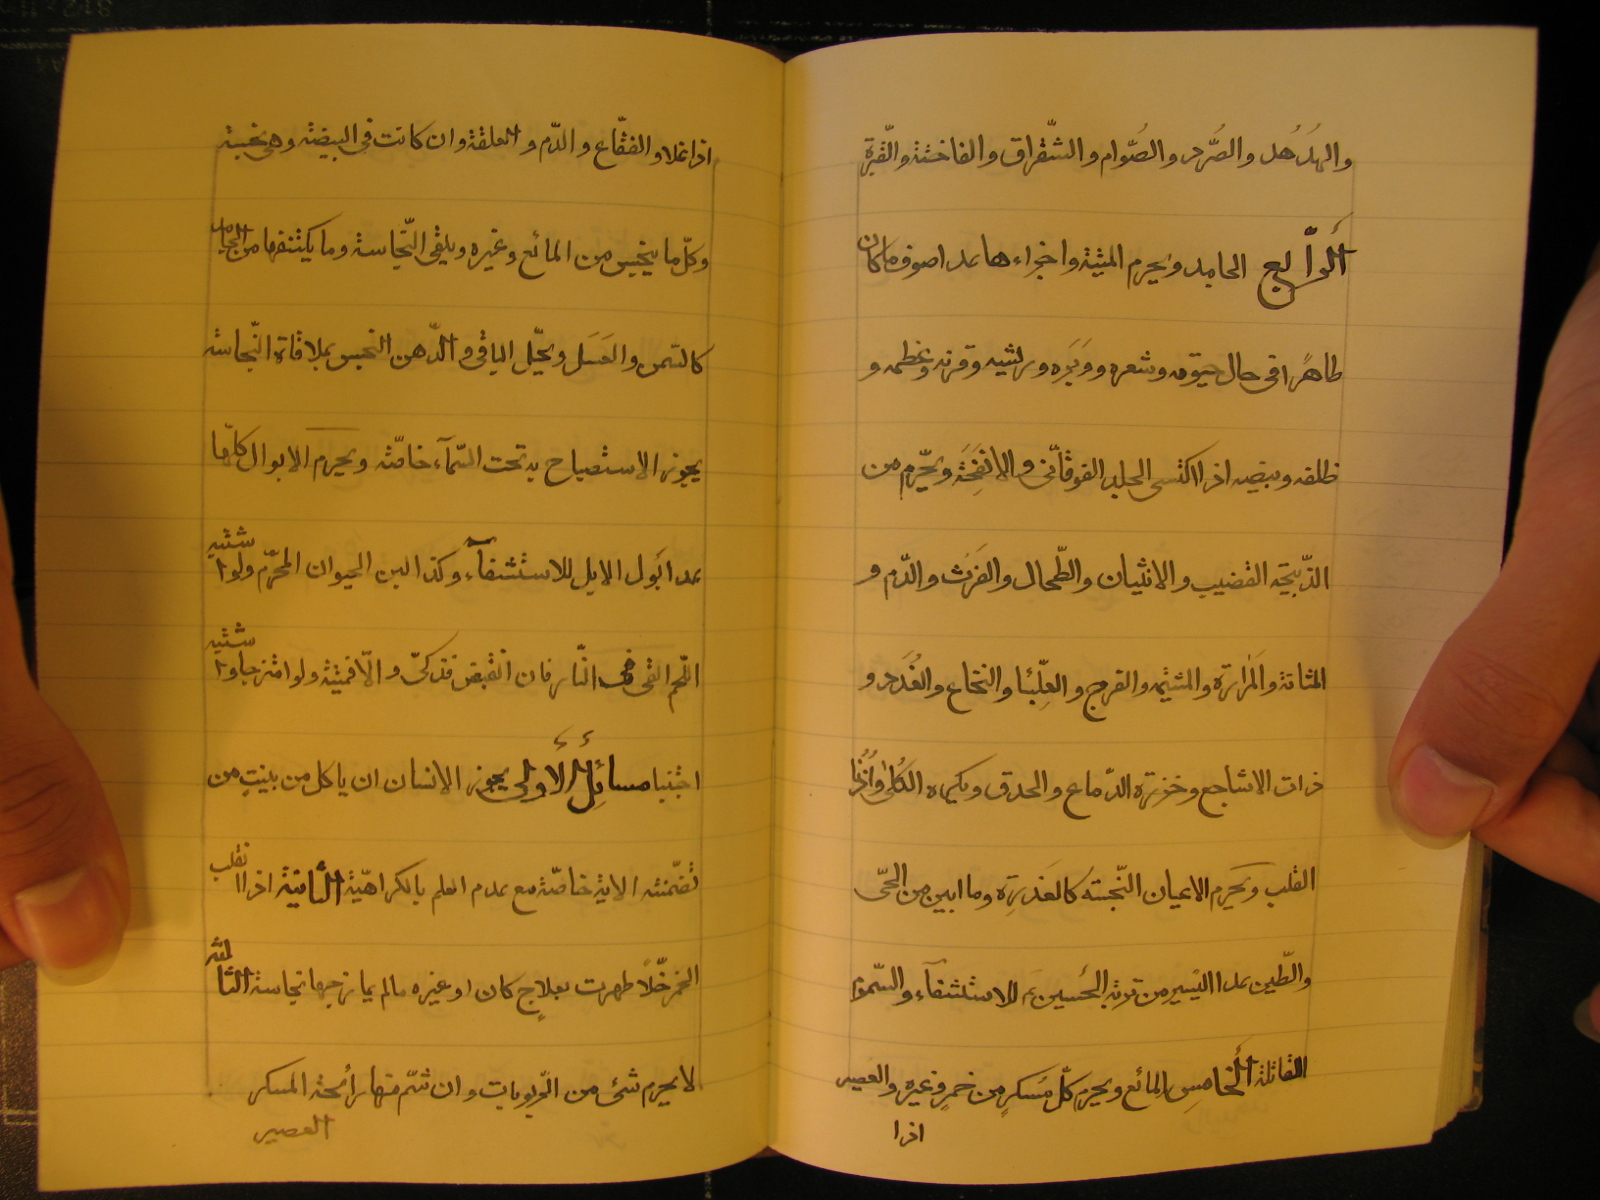 والهدهد والصُّرد والصُّوام والشّقراق والفاختة والقّبرة
ألرّابع الجامد ويحرم الميتة واجزاءها عدا صوف ما كان
طاهرًا فى حال حيوته وشعره ووَبَره وريشه وقرنه وعظمه و
ظلفه وبيضه اذا اكتسى الجلد الفوقانّى والانفَحَة ويحّرم من
الذّبيحَة القضيب والانثيان والطّحال والفَرث والدّم و
المثانة والمَرارة والمشيمه والفرج والعِلّبا والنخاع والغُدَد و
ذات الاشاجع وخرزة الدّماغ والحدق ويكره الكُلى وأُذُنا
القلب ويَحرم الاعيان النّجسته كالعَذرَةِ وما ابين من الحىّ
والطّين عدا اليسير من تربة الحُسين ع للاستشفآء والسّموم
القاتلة ألخامس المائع ويحرم كلّ مُسكرٍ من خمرٍ وغيره والعصير
اذا
اذا غلا والفقّاع والدّم والعلقة وان كانت فى البيضة وهى نجسة
وكلّ ما ينجس من المائع وغيره ويلقى النّجاسة وما يكتنفها من الجامد
كالسّمن والعَسَل ويحّل الباقى والدّهن النجس بملاقاة النّجاسة
يجوز الاستصباح به تحت السّمآء خاصّة ويحرم الابوال كلّها
عدا بَول الابل للاستشفآء وكذا لبن الحيوان المحرّم ولو اشتبه
اللّحم القى فى النّار فان انقبض فذكىّ والّا فميتة ولو امتزجا واشتبه
اجتنبا مسائِل ألأولى يجوز الانسان ان ياكل من بيتِ من
تضمّنته الاية خاصّة مع عدم العلم بالكراهيّة الثّانية اذا انقلب
الخمر خّلًا طهرت بعلاجٍ كان او غيره مالم يمازجها نجاسة الثالثة
لا يحرم شئ من الرّبوبات وان شمّ منها رائحة المسكر
العصير